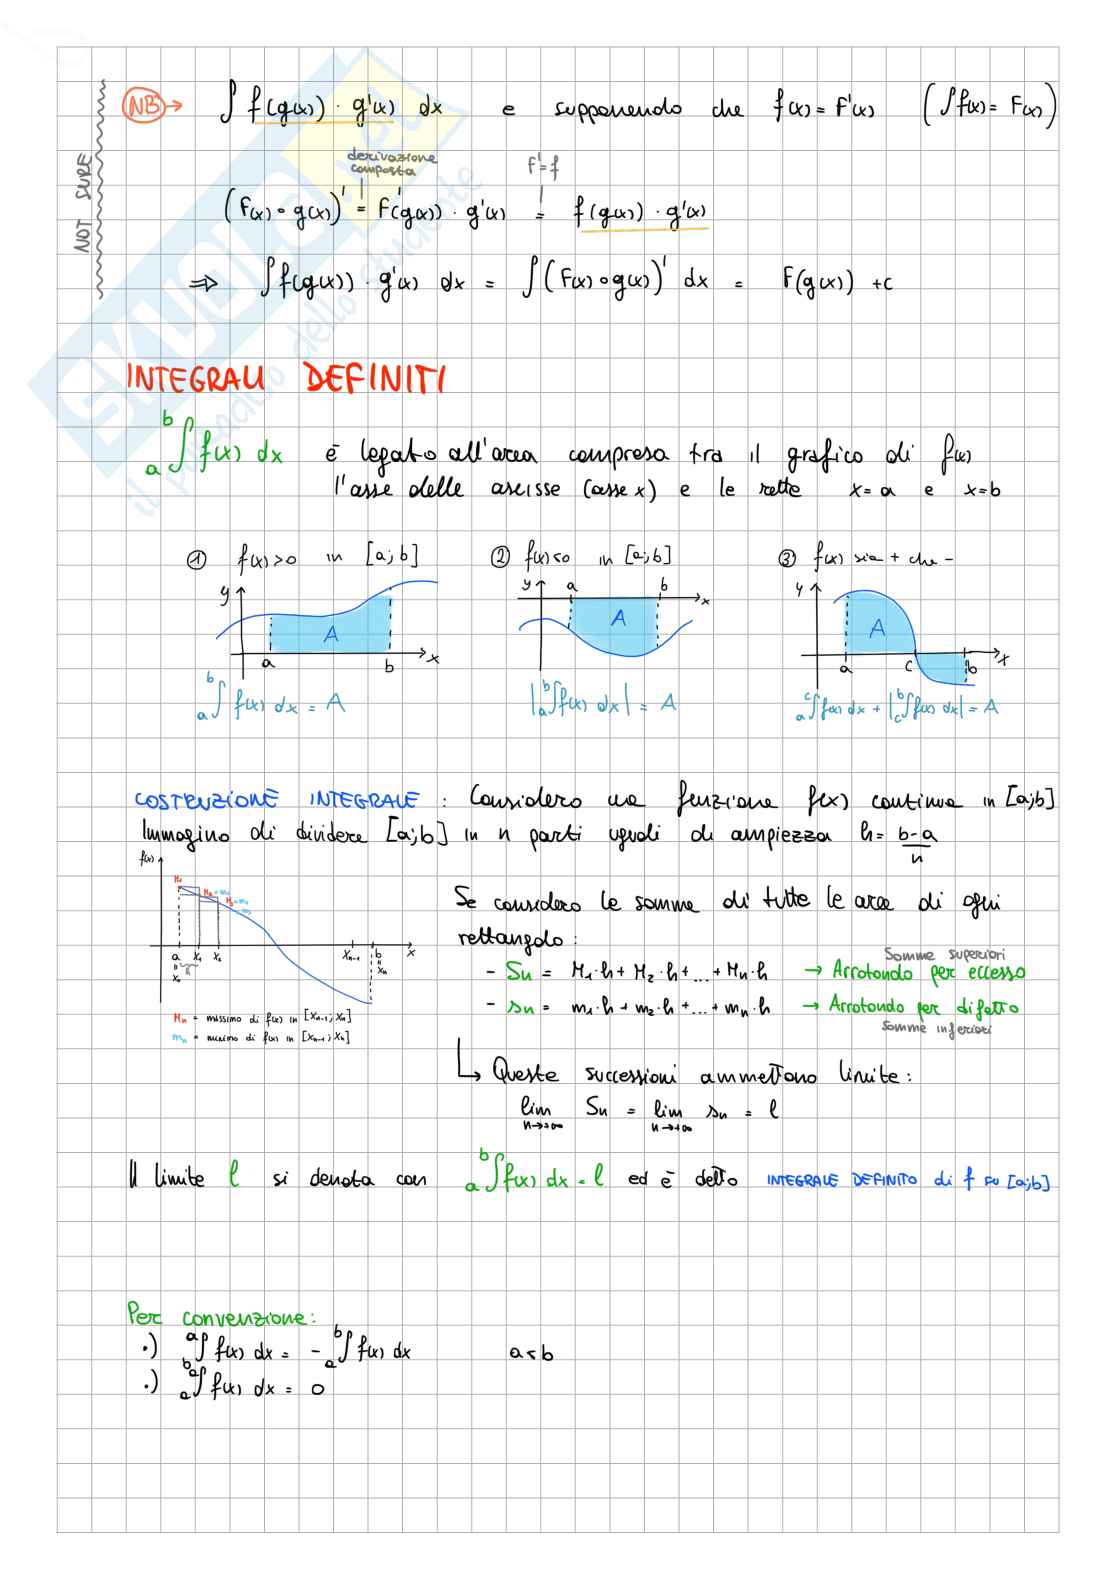 NOT SURE
NB → ∫ f(g(x)) · g'(x) dx e supponendo che f(x) = F'(x) (∫f(x) = F(x))
derivazione composta F' = f
(F(x) ∘ g(x))' = F'(g(x)) · g'(x) = f(g(x)) · g'(x)
⇒ ∫f(g(x)) · g'(x) dx = ∫(F(x) ∘ g(x))' dx = F(g(x)) + c
INTEGRALI DEFINITI
a∫b f(x) dx è legato all'area compresa tra il grafico di f(x)
l'asse delle ascisse (asse x) e le rette x = a e x = b
① f(x) > 0 in [a; b] ② f(x) < 0 in [a; b] ③ f(x) sia + che -
y a b x A
y a b x A
y a c b x A
a∫b f(x) dx = A |a∫b f(x) dx| = A a∫c f(x) dx + |c∫b f(x) dx| = A
COSTRUZIONE INTEGRALE : Considero una funzione f(x) continua in [a;b]
Immagino di dividere [a;b] in n parti uguali di ampiezza h = b-a / n
f(x) M₁ M₂ = m₁ M₃ = m₂ m₃
a x₁ x₂ xn-1 b x
x₀ h xn
Mn = massimo di f(x) in [xn-1; xn]
mn = minimo di f(x) in [xn-1; xn]
Se considero le somme di tutte le aree di ogni
rettangolo :
Somme superiori
- Sn = M₁·h + M₂·h + ... + Mn·h → Arrotondo per eccesso
- sn = m₁·h + m₂·h + ... + mn·h → Arrotondo per difetto
Somme inferiori
↳ Queste successioni ammettono limite :
lim n→+∞ Sn = lim n→+∞ sn = l
Il limite l si denota con a∫b f(x) dx = l ed è detto INTEGRALE DEFINITO di f su [a;b]
Per convenzione:
·) b∫a f(x) dx = - a∫b f(x) dx a < b
·) a∫a f(x) dx = 0
SKUOLA.net
il paradiso dello studente